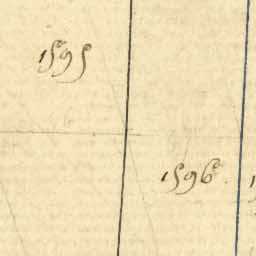 1595
1596.